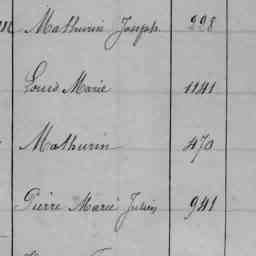 Mathurin Joseph 228
Louis Marie 1141
Mathurin 470
Pierre Marie Julien 941